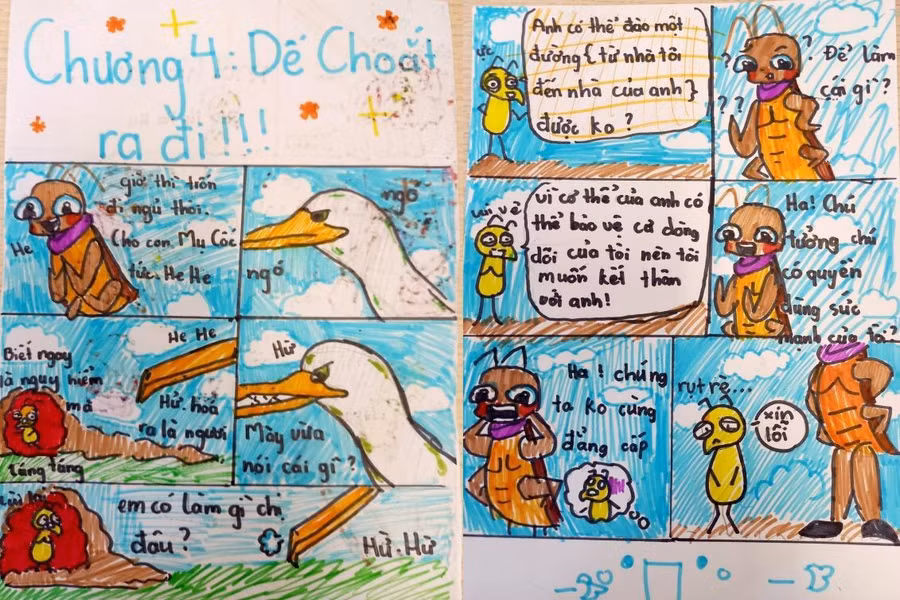 Chương 4: Dế Choắt
ra đi!!!
giờ thì trốn
đi ngủ thôi.
Cho con Mụ Cốc
tức. He He
He
ngó
ngó
He He
Biết ngay
là nguy hiểm
mà
Hử. hoá
ra là ngươi
láng táng
Hừ
Mày vừa
nói cái gì?
em có làm gì chị
đâu?
Hử. Hừ
Anh có thể đào một
đường { từ nhà tôi
đến nhà của anh }
được ko?
? Để làm
cái gì?
??
?
vì cơ thể của anh có
thể bảo vệ cơ dòng
dõi của tôi nên tôi
muốn kết thân
với anh!
Ha! Chú
tưởng chú
có quyền
dùng sức
mạnh của ta?
Ha! chúng
ta ko cùng
đẳng cấp
rụt rè...
xin
lỗi